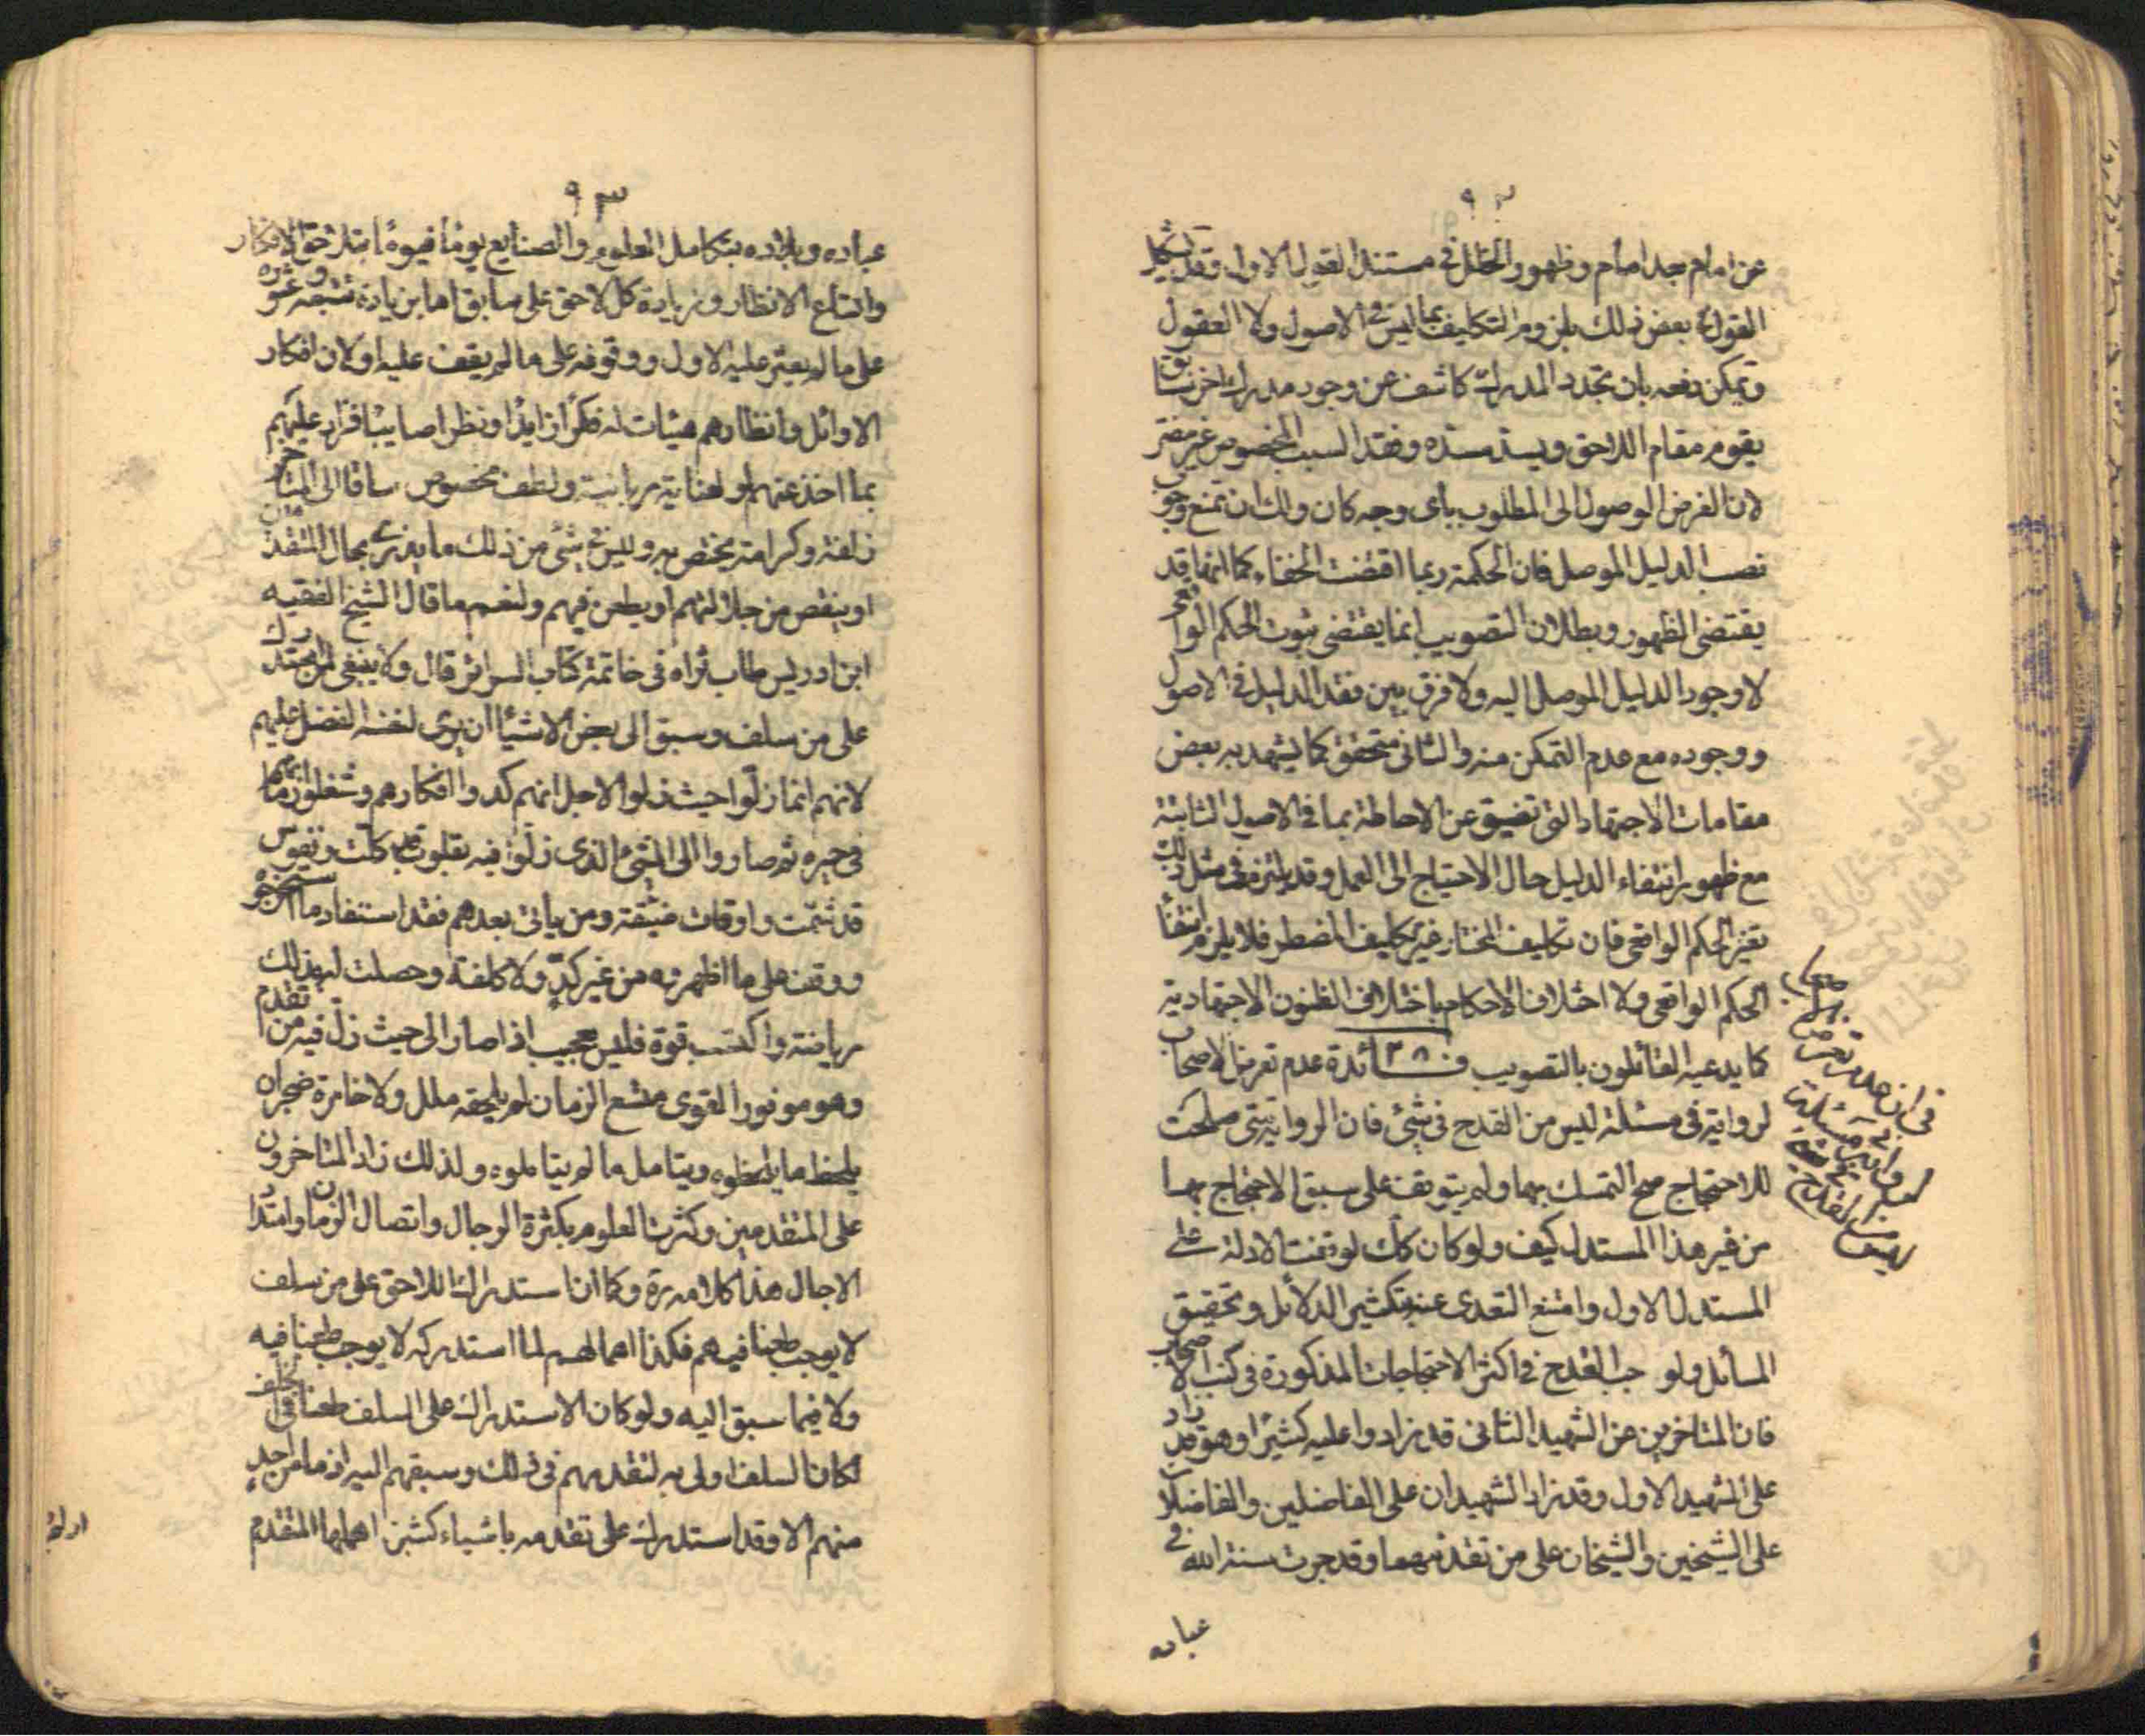 ٩٢
عن امام بعد امام وظهور الخلل في مستند القول الاول وقد يشكل
القول بعض ذلك بلزوم التكليف بما ليس في الاصول ولا العقول
ويمكن دفعه بان تجدد المدرك كاشف عن وجود مدرك اخر سابق
يقوم مقام اللاحق ويسد مسده وفقد السبب المخصوص غير مضر
لان الغرض الوصول الى المطلوب باى وجه كان ولك ان تمنع وجوب
نصب الدليل الموصل فان الحكمة ربما اقتضت الخفاء كما انها قد
يقتضى الظهور وبطلان التصويب انما يقتضى ثبوت الحكم الواقعى
لا وجود الدليل الموصل اليه ولا فرق بين فقد الدليل في الاصول
ووجوده مع عدم التمكن منه والثانى متحقق كما يشهد به بعض
مقامات الاجتهاد التى تضيق عن الاحاطة بما في الاصول الثابتة
مع ظهور انتفاء الدليل حال الاحتياج الى العمل وقد يلتزم في مثل ذلك
تغير الحكم الواقعى فان تكليف المختار غير تكليف المضطر فلا يلزم انتفاء
الحكم الواقعى ولا اختلاف الاحكام باختلاف الظنون الاجتهادية
كما يدعيه القائلون بالتصويب فائدة ٣٨ عدم تعرض الاصحاب
لرواية في مسئلة ليس من القدح في شئ فان الرواية متى صلحت
للاحتجاج صح التمسك بها ولم يتوقف على سبق الاحتجاج بها
من غير هذا المستدل كيف ولو كان كك لوقفت الادلة على
المستدل الاول وامتنع التعدى عنه بتكثير الدلائل وتحقيق
المسائل ولو جب القدح في اكثر الاحتجاجات المذكورة في كتب الاصحاب
فان المتاخرين عن الشهيد الثانى قد زادوا عليه كثيرا وهو قد زاد
على الشهيد الاول وقد زاد الشهيدان على الفاضلين والفاضلان
على الشيخين والشيخان على من تقدمهما وقد جرت سنة الله في
عباده
في ان عدم تعرض
الاصحاب
لرواية في مسئلة
ليس من القدح
٩٣
عباده وبلاده بتكامل العلوم والصنايع يوما فيوما بتلاحق الافكار
واتساع الانظار وزيادة كل لاحق على سابق اما بزيادة تتبعه وعثوره
على ما لم يعثر عليه الاول ووقوفه على ما لم يقف عليه او لان افكار
الاوائل وانظارهم هيئات له فكرا زايدا ونظرا صايبا فزاد عليهم
بما اخذ عنهم او لعناية ربانية ولطف مخصوص ساقا الى المتاخر
زلفة وكرامة يختص به وليس في شئ من ذلك ما يزرى بحال المتقدمين
او ينقص من جلالتهم او يطعن فيهم ولنعم ما قال الشيخ الفقيه
ابن ادريس طاب ثراه في خاتمة كتاب السرائر قال ولا ينبغى لمن استدرك
على من سلف وسبق الى بعض الاشياء ان يرى لنفسه الفضل عليهم
لانهم انما زلوا حيث زلوا لاجل انهم كدوا افكارهم وشغلوا زمانهم
في غيره ثم صاروا الى الشئ الذى زلوا فيه بقلوب قد كلت ونفوس
قد سئمت واوقات ضيقة ومن ياتى بعدهم فقد استفاد ما استخرجوه
ووقف على ما اظهروه من غير كد ولا كلفة وحصلت له بذلك
رياضة واكتسب قوة فليس بعجيب اذا صار الى حيث زل فيه من تقدم
وهو موفور القوى متسع الزمان لم يلحقه ملل ولا خامره ضجر ان
يلحظ ما لم يلحظوه ويتامل ما لم يتاملوه ولذلك زاد المتاخرون
على المتقدمين وكثرت العلوم بكثرة الرجال واتصال الزمان وامتداد
الاجال هذا كلامه ره وكما ان استدراك اللاحق على من سلف
لا يوجب طعنا فيهم فكذا اهمالهم لما استدركه لا يوجب طعنا فيه
ولا فيما سبق اليه ولو كان الاستدراك على السلف طعنا في الخلف
لكان السلف اولى به لتقدمهم في ذلك وسبقهم اليه اذ ما من احد
منهم الا وقد استدرك على تقدمه باشياء كثيرة اهملها المتقدم